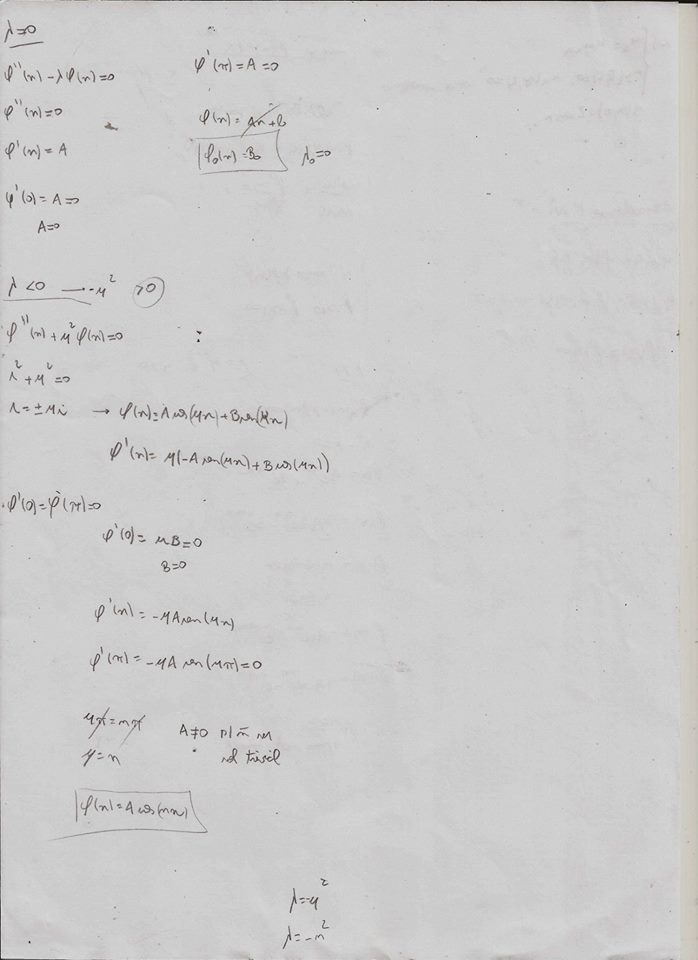 λ=0
φ''(x) - λφ(x)=0
φ''(x)=0
φ'(x) = A
φ'(0) = A=0
A=0
φ'(π) = A =0
φ(x) = Ax+B
φ₀(x) = B₀ λ₀=0
λ <0 → -μ² >0
φ''(x) + μ²φ(x)=0
r² + μ² =0
r = ±μi → φ(x)= A cos(μx) + B sen(μx)
φ'(x) = μ(-A sen(μx) + B cos(μx))
φ'(0)=φ'(π)=0
φ'(0) = μB=0
B=0
φ'(x) = -μA sen(μx)
φ'(π) = -μA sen(μπ)=0
μπ = nπ A≠0 p/ ñ ser
μ=n sol trivial
φ(x) = A cos(nx)
λ=-μ²
λ=-n²